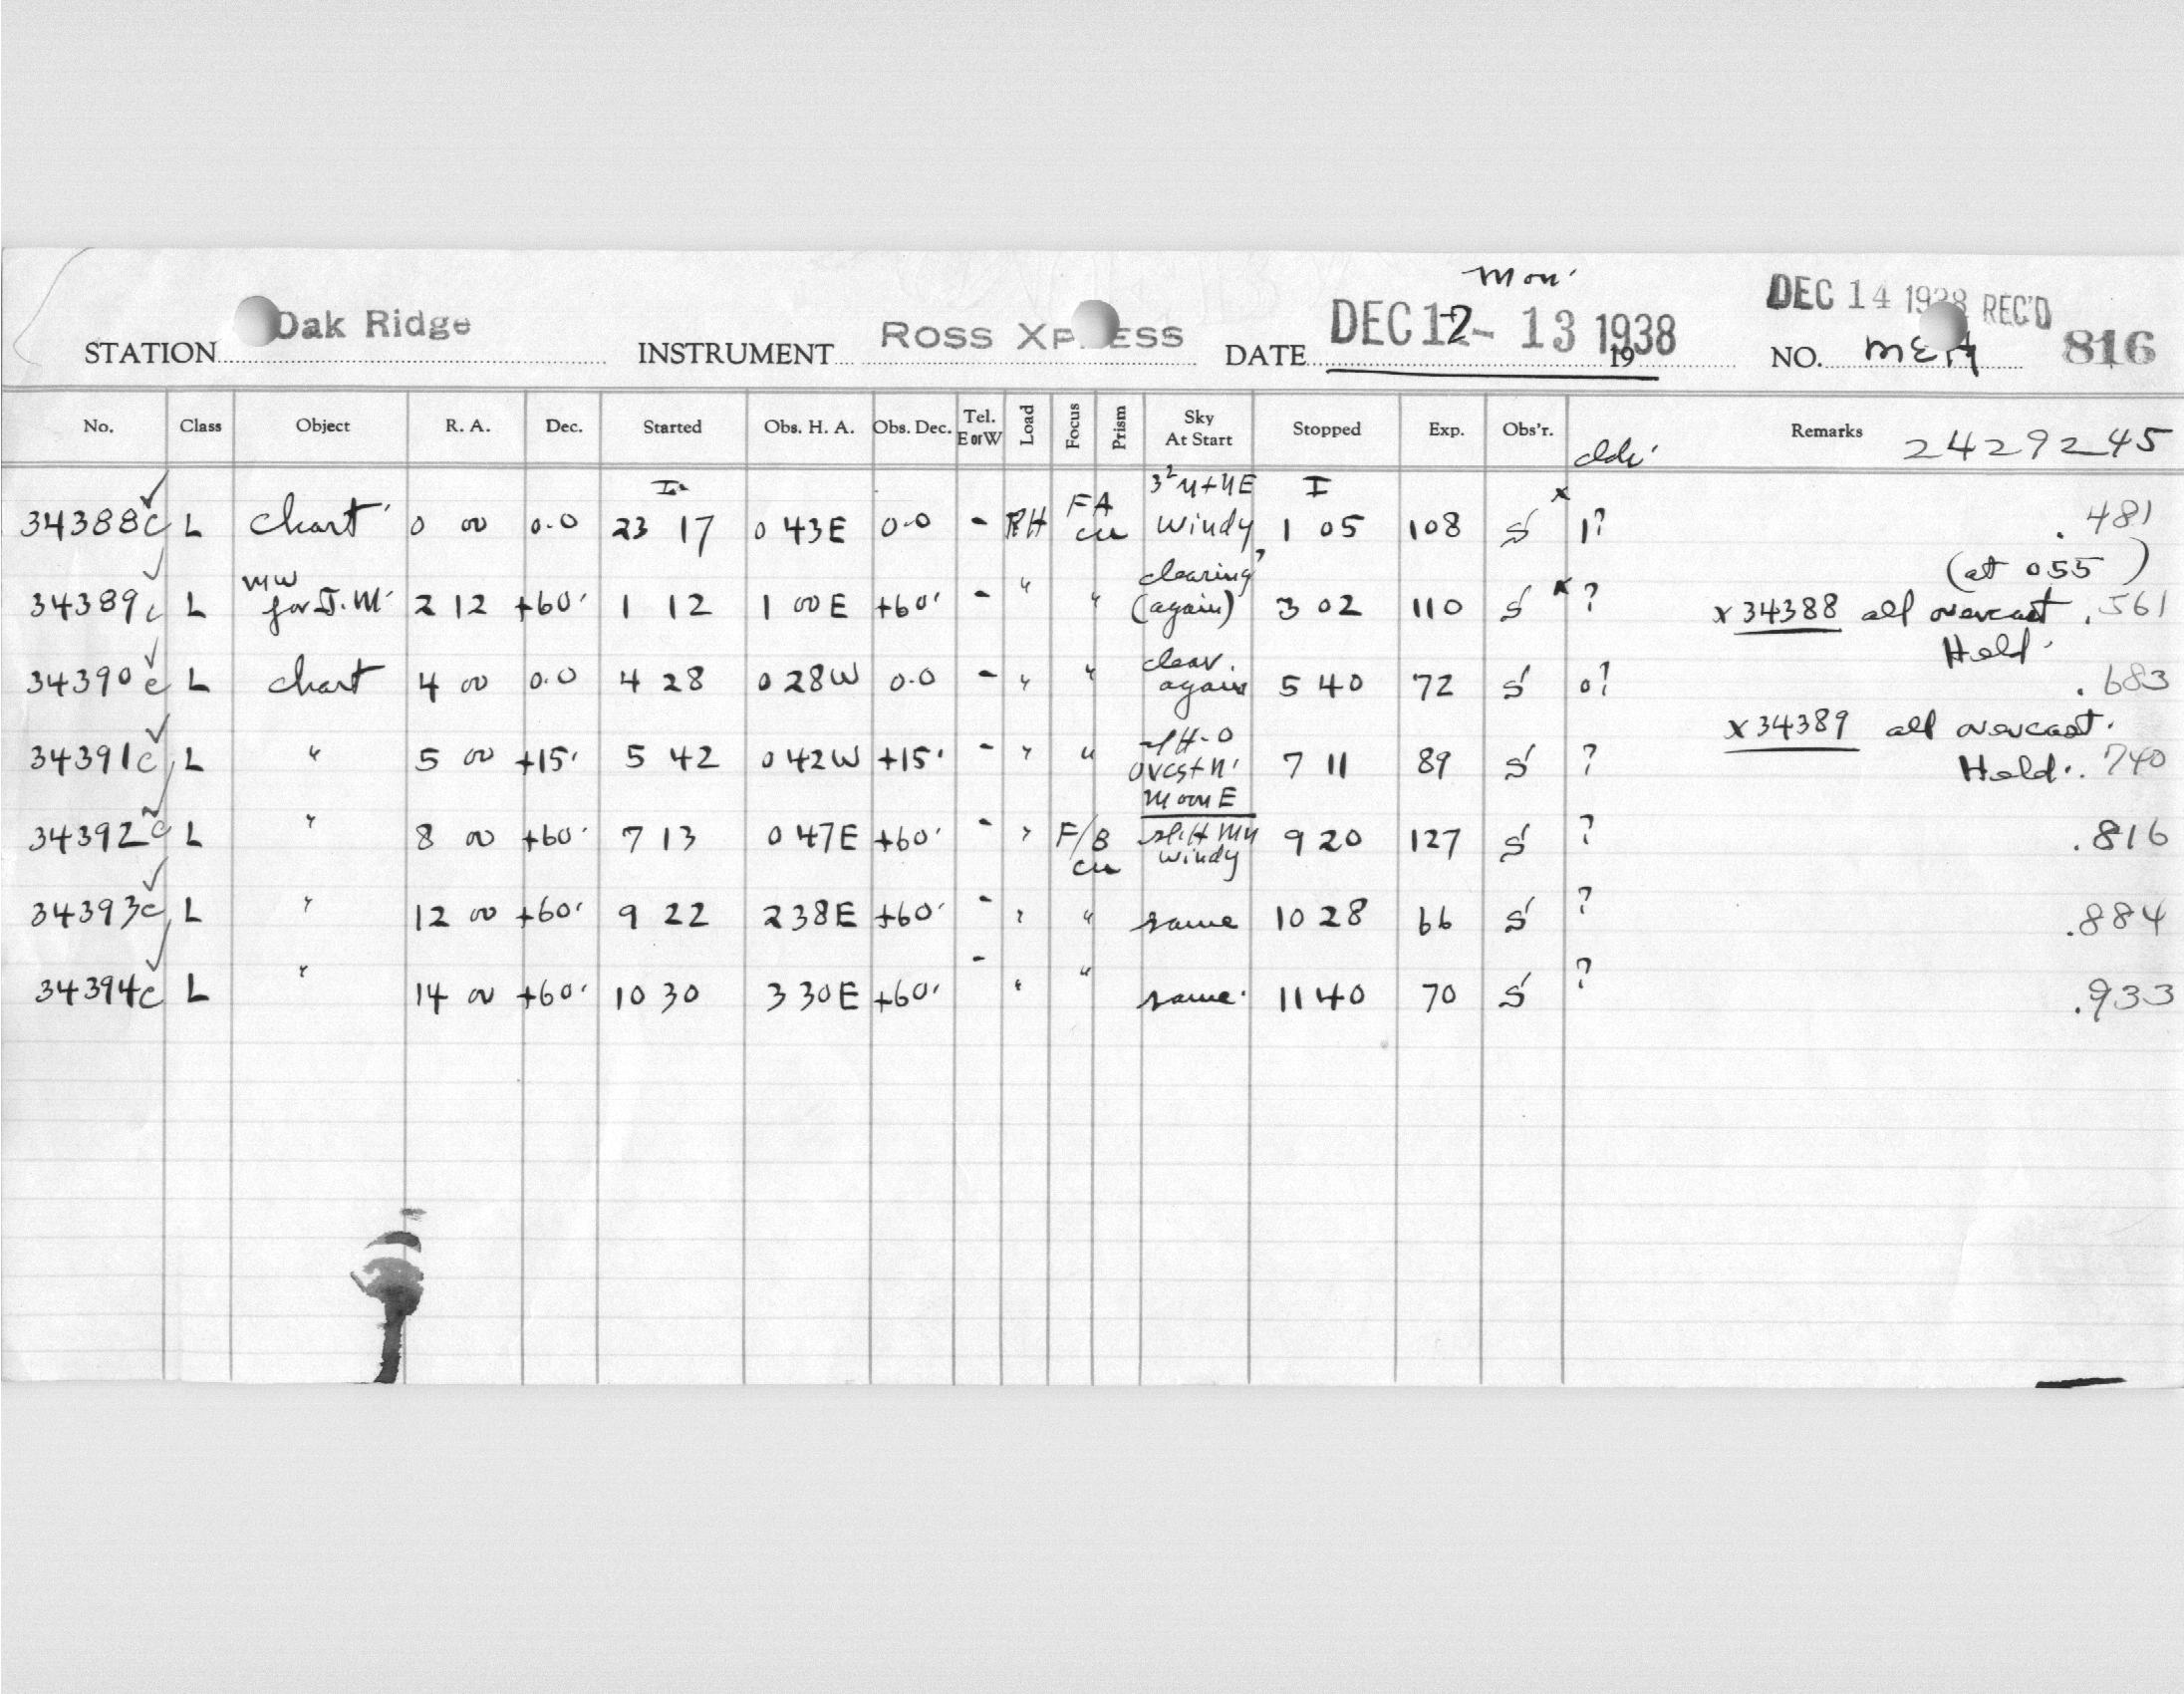 Mon.
DEC 14 1938 REC'D
STATION Oak Ridge INSTRUMENT ROSS XPRESS DATE DEC 12-13 1938 19 NO. MEH 816
No. Class Object R. A. Dec. Started Obs. H. A. Obs. Dec. Tel. E or W Load Focus Prism Sky At Start Stopped Exp. Obs'r. Remarks 2429245
34388c L chart 0 00 0.0 23 17 0 43E 0.0 - RH FA cu windy 1 05 108 S x 1? .481
(at 0 55)
34389c L MW for J.M. 2 12 +60' 1 12 1 00E +60' - " " clearing (again) 3 02 110 S x ? x 34388 all overcast .561
Held.
34390c L chart 4 00 0.0 4 28 0 28W 0.0 - " " clear. again 5 40 72 S 0? .683
x 34389 all overcast.
34391c L " 5 00 +15' 5 42 0 42W +15' - " " ovcst N. 7 11 89 S ? Held. .740
Moon E
34392c L " 8 00 +60' 7 13 0 47E +60' - " F/B cu windy 9 20 127 S ? .816
34393c L " 12 00 +60' 9 22 2 38E +60' - " " same 10 28 66 S ? .884
34394c L " 14 00 +60' 10 30 3 30E +60' - " " same. 11 40 70 S ? .933